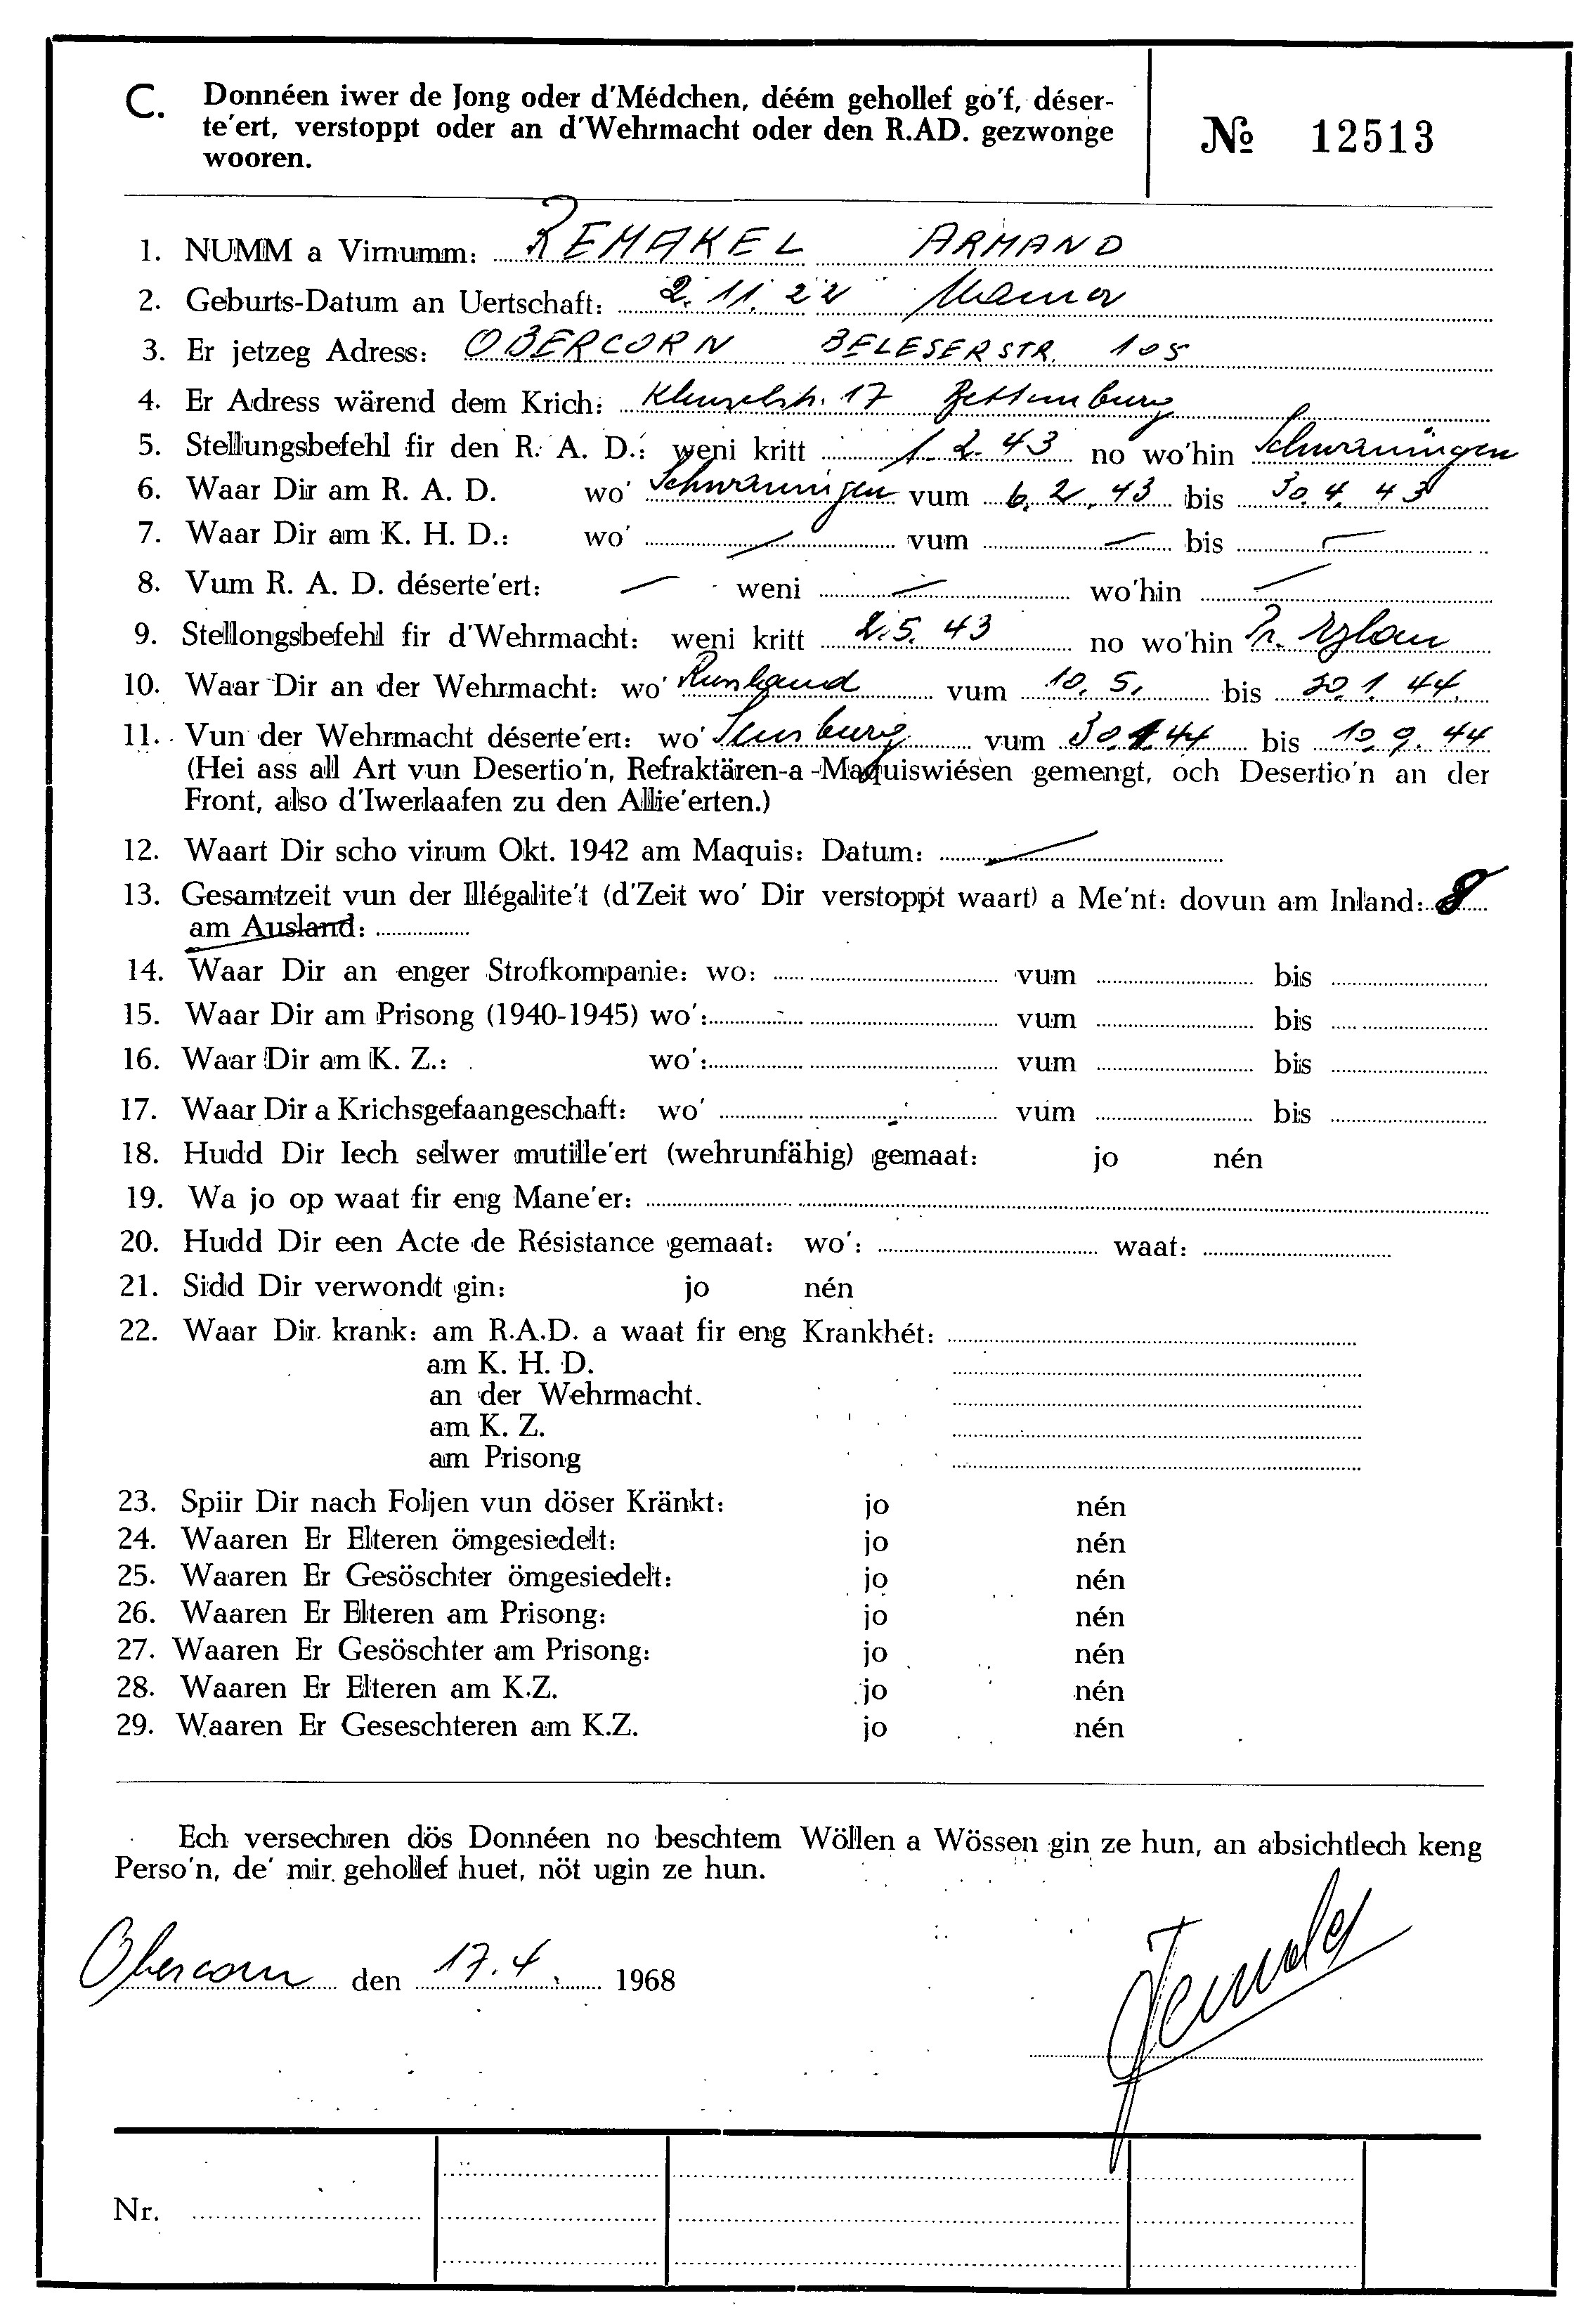 C. Donnéen iwer de Jong oder d'Médchen, déém gehollef go'f, déser-
te'ert, verstoppt oder an d'Wehrmacht oder den R.AD. gezwonge
wooren.
№ 12513
1. NUMM a Virnumm: REMAKEL ARMAND
2. Geburts-Datum an Uertschaft: 2.11.22 Mamer
3. Er jetzeg Adress: OBERCORN BELESERSTR. 105
4. Er Adress wärend dem Krich: 17 Bettemburg
5. Stellungsbefehl fir den R. A. D.: weni kritt 1.2.43 no wo'hin Schwanningen
6. Waar Dir am R. A. D. wo' Schwanningen vum 6.2.43 bis 30.4.43
7. Waar Dir am K. H. D.: wo' — vum — bis —
8. Vum R. A. D. déserte'ert: — weni — wo'hin —
9. Stellongsbefehl fir d'Wehrmacht: weni kritt 2.5.43 no wo'hin Pr. Eylau
10. Waar Dir an der Wehrmacht: wo' Russland vum 10.5. bis 30.1.44.
11. Vun der Wehrmacht déserte'ert: wo' vum 30.1.44 bis 10.9.44
(Hei ass all Art vun Desertio'n, Refraktären-a -Maquiswiésen gemengt, och Desertio'n an der
Front, also d'Iwerlaafen zu den Allie'erten.)
12. Waart Dir scho virum Okt. 1942 am Maquis: Datum: —
13. Gesamtzeit vun der Illégalite't (d'Zeit wo' Dir verstoppt waart) a Me'nt: dovun am Inland: 8
am Ausland:
14. Waar Dir an enger Strofkompanie: wo: vum bis
15. Waar Dir am Prisong (1940-1945) wo': vum bis
16. Waar Dir am K. Z.: wo': vum bis
17. Waar Dir a Krichsgefaangeschaft: wo' vum bis
18. Hudd Dir Iech selwer mutille'ert (wehrunfähig) gemaat: jo nén
19. Wa jo op waat fir eng Mane'er:
20. Hudd Dir een Acte de Résistance gemaat: wo': waat:
21. Sidd Dir verwondt gin: jo nén
22. Waar Dir krank: am R.A.D. a waat fir eng Krankhét:
am K. H. D.
an der Wehrmacht.
am K. Z.
am Prisong
23. Spiir Dir nach Foljen vun döser Kränkt: jo nén
24. Waaren Er Elteren ömgesiedelt: jo nén
25. Waaren Er Gesöschter ömgesiedelt: jo nén
26. Waaren Er Elteren am Prisong: jo nén
27. Waaren Er Gesöschter am Prisong: jo nén
28. Waaren Er Elteren am K.Z. jo nén
29. Waaren Er Geseschteren am K.Z. jo nén
Ech versechren dös Donnéen no beschtem Wöllen a Wössen gin ze hun, an absichtlech keng
Perso'n, de' mir gehollef huet, nöt ugin ze hun.
Obercorn den 17.4. 1968
Nr.